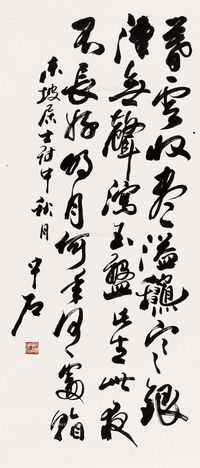 暮雲收盡溢寒銀
漢無聲玉盤此生此夜
不長好明月年處看
東坡居士詩中秋月
中石